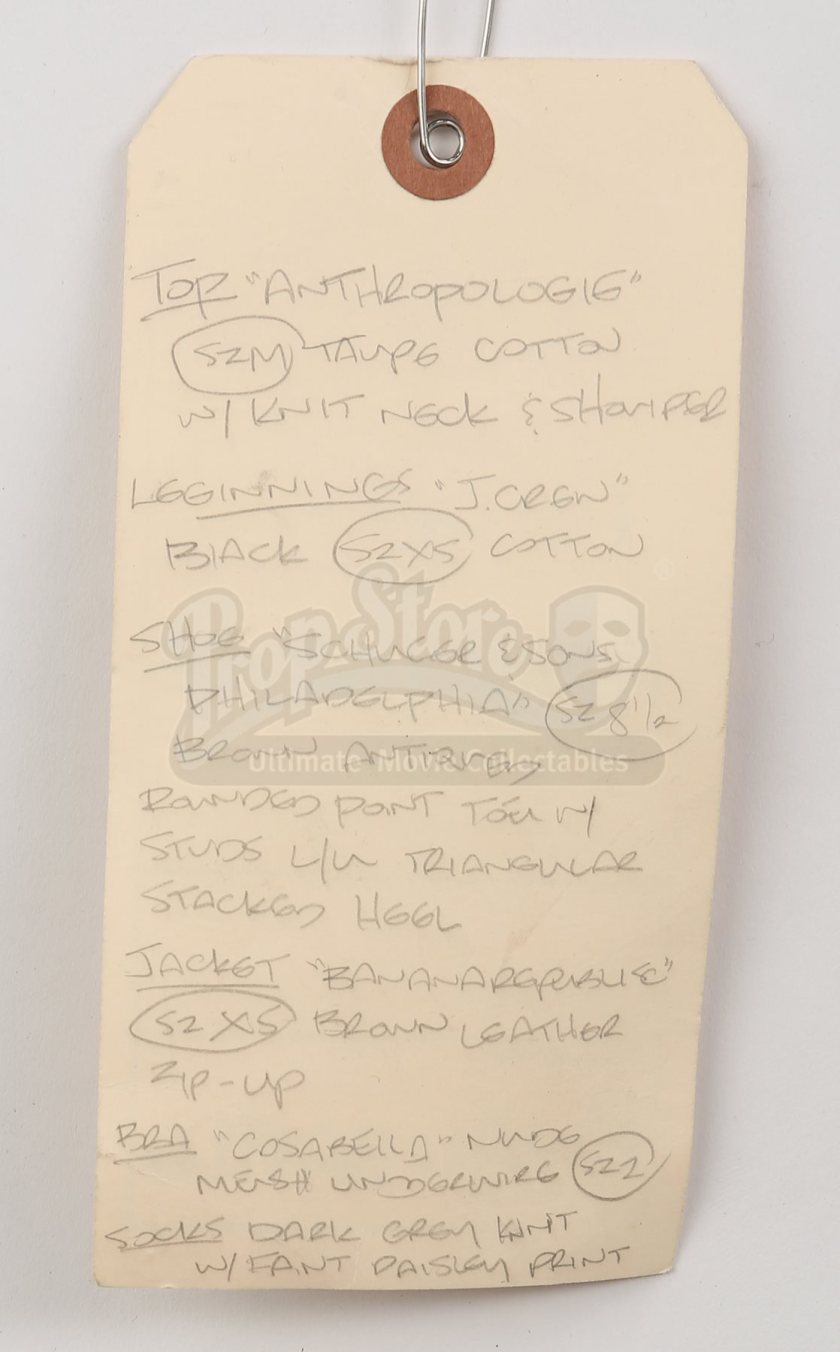 TOP "ANTHROPOLOGIE"
SZ M TAUPE COTTON
W/ KNIT NECK & SHOULDER
LEGINNINGS "J.CREW"
BLACK SZ XS COTTON
SHOE "SCHULER & SONS
PHILADELPHIA" SZ 8 1/2
BROWN ANTIQUED
ROUNDED POINT TOE W/
STUDS TRIANGULAR
STACKED HEEL
JACKET "BANANA REPUBLIC"
SZ XS BROWN LEATHER
ZIP-UP
BRA "COSABELLA" NUDE
MESH UNDERWIRE SZ 2
SOCKS DARK GREY KNIT
W/ FAINT PAISLEY PRINT
Prop Store
Ultimate Movie Collectables